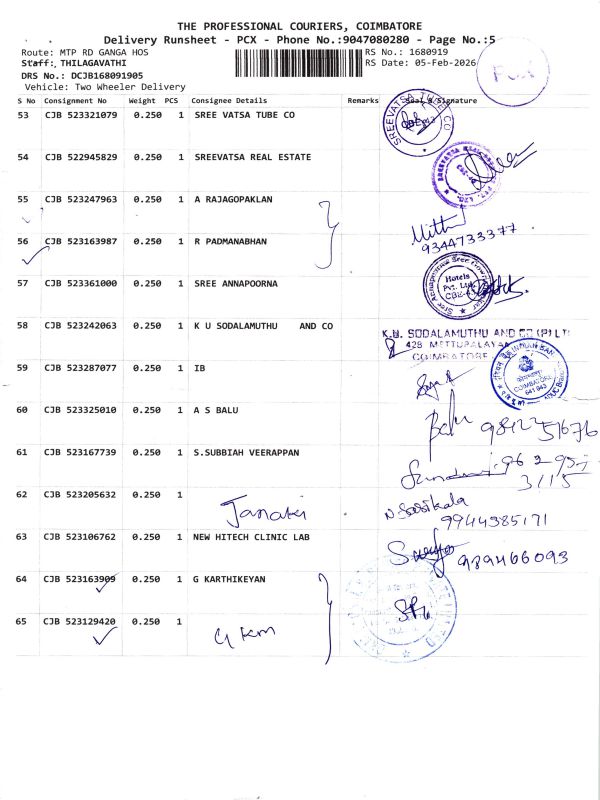 THE PROFESSIONAL COURIERS, COIMBATORE
Delivery Runsheet - PCX - Phone No.:9047080280 - Page No.:5
Route: MTP RD GANGA HOS
RS No.: 1680919
Staff: THILAGAVATHI
RS Date: 05-Feb-2026
DRS No.: DCJB168091905
Vehicle: Two Wheeler Delivery
S No Consignment No Weight PCS Consignee Details Remarks Seal & Signature
53 CJB 523321079 0.250 1 SREE VATSA TUBE CO
SREEVATSA TUBE CO
54 CJB 522945829 0.250 1 SREEVATSA REAL ESTATE
55 CJB 523247963 0.250 1 A RAJAGOPAKLAN
56 CJB 523163987 0.250 1 R PADMANABHAN
9344733377
57 CJB 523361000 0.250 1 SREE ANNAPOORNA
Hotels
Pvt. Ltd.
58 CJB 523242063 0.250 1 K U SODALAMUTHU AND CO
K.U. SODALAMUTHU AND CO (P) LT
428 METTUPALAYA
COIMBATORE
59 CJB 523287077 0.250 1 IB
INDIAN BAN
COIMBATORE
641 043
60 CJB 523325010 0.250 1 A S BALU
Balu
61 CJB 523167739 0.250 1 S.SUBBIAH VEERAPPAN
62 CJB 523205632 0.250 1
Janaki
N. Sasikala
9944385171
63 CJB 523106762 0.250 1 NEW HITECH CLINIC LAB
9894466093
64 CJB 523163909 0.250 1 G KARTHIKEYAN
65 CJB 523129420 0.250 1